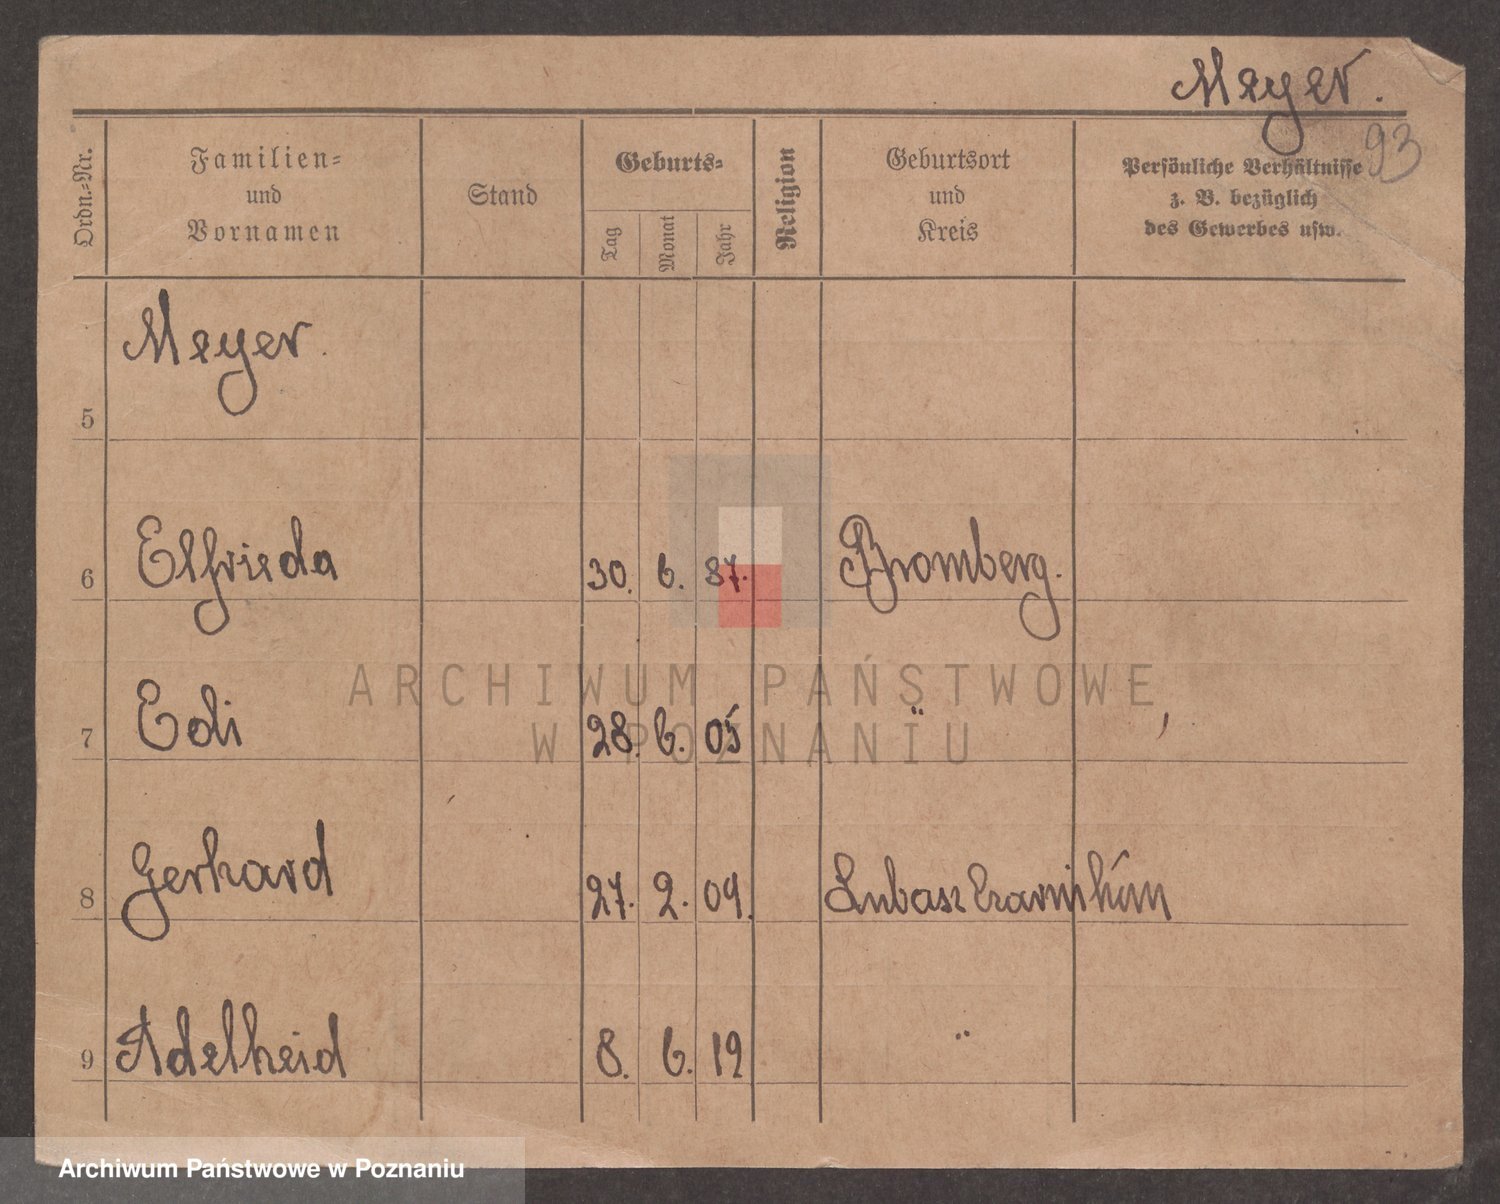 Meyer.
93
Ordn.=Nr.
Familien=
und
Vornamen
Stand
Geburts=
Tag
Monat
Jahr
Religion
Geburtsort
und
Kreis
Persönliche Verhältnisse
z. B. bezüglich
des Gewerbes usw.
Meyer.
5
6 Elfrieda 30. 6. 87. Bromberg.
ARCHIWUM PAŃSTWOWE
W POZNANIU
7 Edi 28. 6. 05 "
8 Gerhard 27. 2. 09. Lubasz
9 Adelheid 8. 6. 12 "
Archiwum Państwowe w Poznaniu